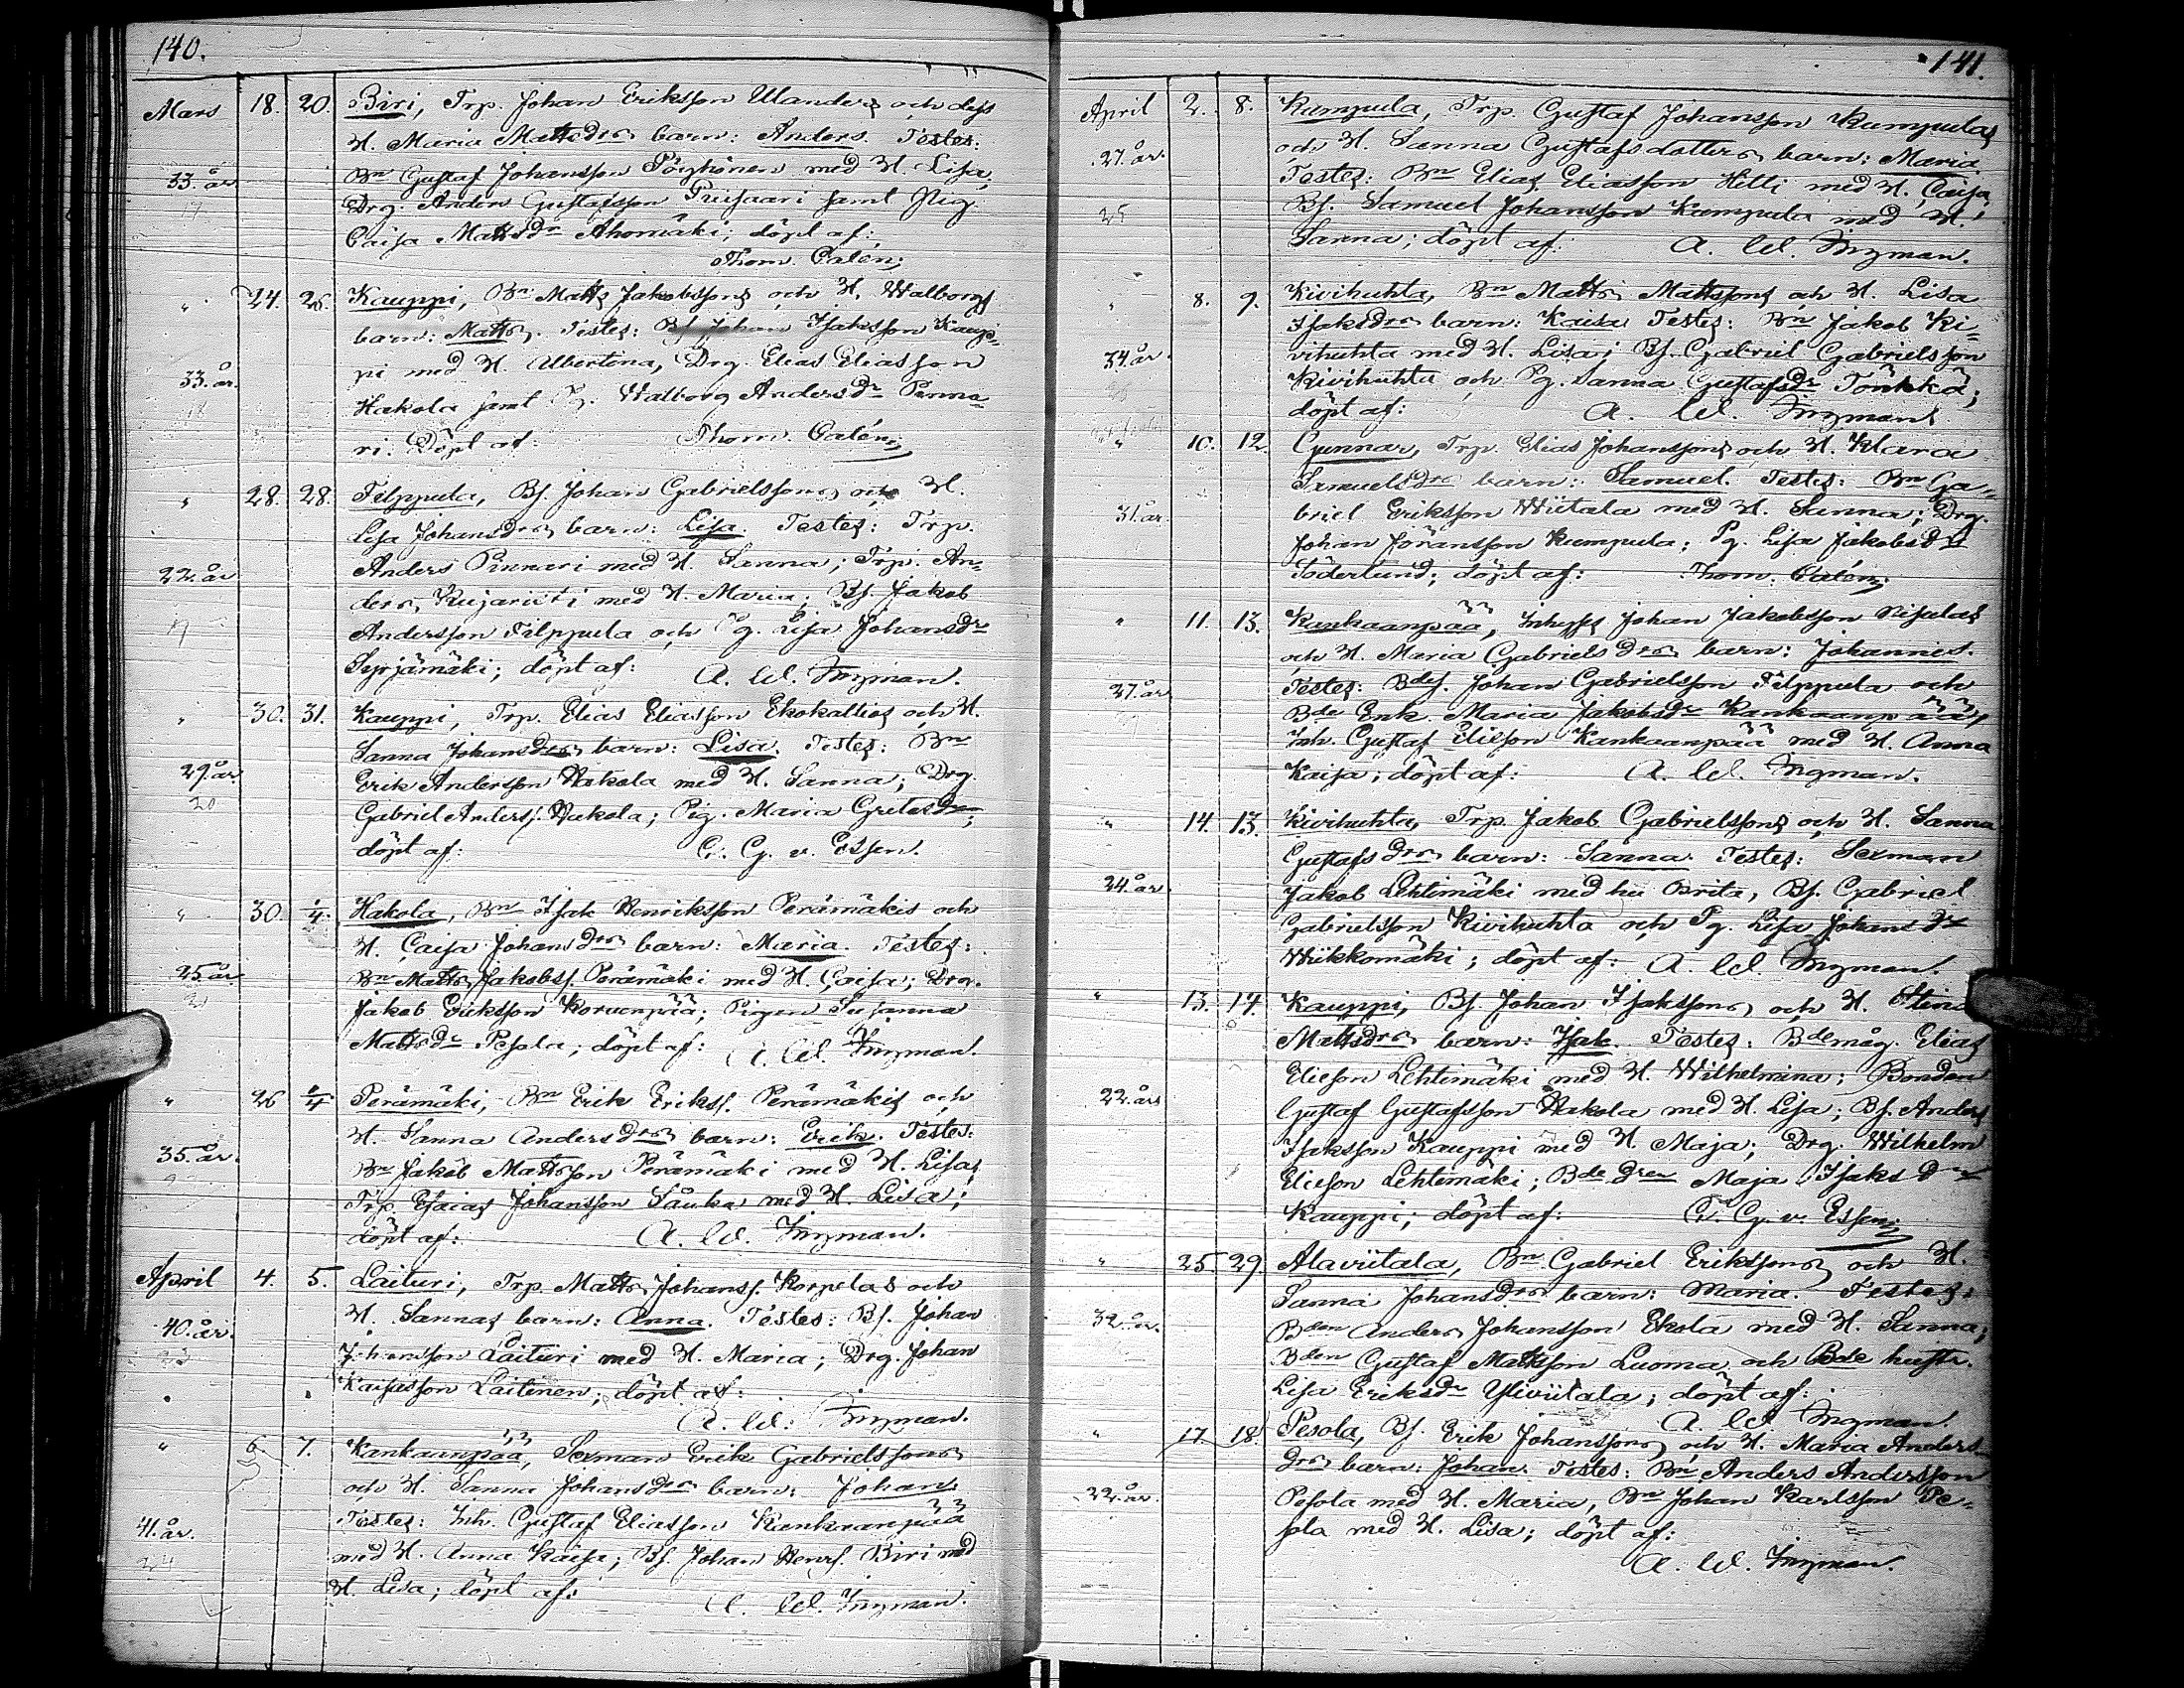 140.
Mars 18. 20. Biri, Trp. Johan Eriksson Ulanders och dess
H. Maria Mattsdrs barn: Anders. Testes:
33. år Bn Gustaf Johansson Pöyhönen med H. Lisa,
Drg. Anders Gustafsson Priisaari samt Pig.
Caisa Mattsdr Ahomäki; döpt af:
Thom. Calén;
" 24. 26. Kauppi, Bn Matts Jakobssons och H. Walborgs
barn: Matts. Testes: Bs. Johan Isaksson Kaup-
33. år. pi med H. Albertina, Drg. Elias Eliasson
Hakola samt P. Walborg Andersdr Penna-
ri. Döpt af: Thom. Calén;
" 28. 28. Filppula, Bs. Johan Gabrielssons och H.
Lisa Johansdrs barn: Lisa. Testes: Trp.
22. år Anders Pinnari med H. Sanna; Trp. An-
ders Kujariiti med H. Maria; Bs. Jakob
Andersson Filppula och Pg. Lisa Johansdr
Syrjämäki; döpt af: A. W. Ingman.
" 30. 31. Kauppi, Trp. Elias Eliasson Ekokallios och H.
Sanna Johansdrs barn: Lisa. Testes: Bn
29. år Erik Andersson Hakola med H. Sanna; Drg.
20 Gabriel Anderss. Hakola; Pig. Maria Gretasdr;
döpt af: C. G. v. Essen.
" 30. 1/4. Hakola, Bn Isak Henriksson Perämäkis och
H. Caisa Johansdrs barn: Maria. Testes:
25 år Bn Matts Jakobss. Perämäki med H. Caisa; Drg.
Jakob Eriksson Korvenpää; Pigen Susanna
Mattsdr Pesola; döpt af: A. W. Ingman.
" 26 1/4 Perämäki, Bn Erik Erikss. Perämäkis och
H. Sanna Andersdrs barn: Erik. Testes:
35. år. Bn Jakob Mattsson Perämäki med H. Lisa,
Trp. Esaias Johansson Sauka med H. Lisa;
döpt af: A. W. Ingman.
April 4. 5. Laituri, Trp. Matts Johanss. Korpelas och
H. Sannas barn: Anna. Testes: Bs. Johan
40. år. Johansson Laituri med H. Maria; Drg. Johan
Kaisasson Laitinen; döpt af:
A. W. Ingman.
" 6. 7. Kankaanpää, Sexman Erik Gabrielssons
och H. Sanna Johansdrs barn: Johan.
41. år. Testes: Inh. Gustaf Eliasson Kankaanpää
24 med H. Anna Kaisa; Bs. Johan Henrs. Biri med
H. Lisa; döpt af: A. W. Ingman.
141.
April 2. 8. Kumpula, Trp. Gustaf Johansson Kumpulas
27. år. och H. Sanna Gustafsdotters barn: Maria
Testes: Bn Elias Eliasson Hilli med H. Caisa;
25 Bs. Samuel Johansson Kumpula med H.
Sanna; döpt af: A. W. Ingman.
" 8. 9. Kivihuhta, Bn Matts Mattssons och H. Lisa
Isaksdrs barn: Kaisa Testes: Bn Jakob Ki-
34. år. vihuhta med H. Lisa; Bs. Gabriel Gabrielsson
Kivihuhta och Pg. Sanna Gustafsdr Tönkkä;
döpt af: A. W. Ingman.
" 10. 12. Gunnar, Trp. Elias Johanssons och H. Klara
Samuelsdrs barn: Samuel. Testes: Bn Ga-
31. år. briel Eriksson Wiitala med H. Sanna; Drg.
Johan Jöransson Kumpula; Pg. Lisa Jakobsdr
Söderlund; döpt af: Thom. Calén;
" 11. 13. Kankaanpää, Inhyss Johan Jakobsson Nisulas
och H. Maria Gabrielsdrs barn: Johannes.
37. år Testes: Bdes. Johan Gabrielsson Filppula och
Bde Enk. Maria Jakobsdr Kankaanpää,
Inh. Gustaf Elisson Kankaanpää med H. Anna
Kaisa; döpt af: A. W. Ingman.
" 14. 13. Kivihuhta, Trp. Jakob Gabrielssons och H. Sanna
Gustafsdrs barn: Sanna. Testes: Sexman
24. år. Jakob Lehtimäki med hu Brita, Bs. Gabriel
Gabrielsson Kivihuhta och Pg. Lisa Johansdr
Wiikkomäki; döpt af: A. W. Ingman.
" 13. 14. Kauppi, Bs. Johan Isakssons och H. Stina
Mattsdrs barn: Isak. Testes: Bdemåg. Elias
22. års Elieson Lehtimäki med H. Wilhelmina; Bonden
Gustaf Gustafsson Hakola med H. Lisa; Bs. Anders
Isaksson Kauppi med H. Maja; Drg. Wilhelm
Elieson Lehtimäki; Bde Dren Maja Isaksdr
Kauppi; döpt af: C. G. v. Essen;
" 25. 29. Alaviitala, Bn Gabriel Erikssons och H.
Sanna Johansdrs barn: Maria. Testes:
32. år. Bden Anders Johansson Ekola med H. Sanna;
Bden Gustaf Mattsson Luoma och Bde hustr.
Lisa Eriksdr Yliviitala; döpt af:
A. W. Ingman.
" 17. 18. Pesola, Bs. Erik Johanssons och H. Maria Anders
drs barn: Johan. Testes: Bn Anders Andersson
22. år. Pesola med H. Maria, Bn Johan Karlsson Pe-
sola med H. Lisa; döpt af:
A. W. Ingman.